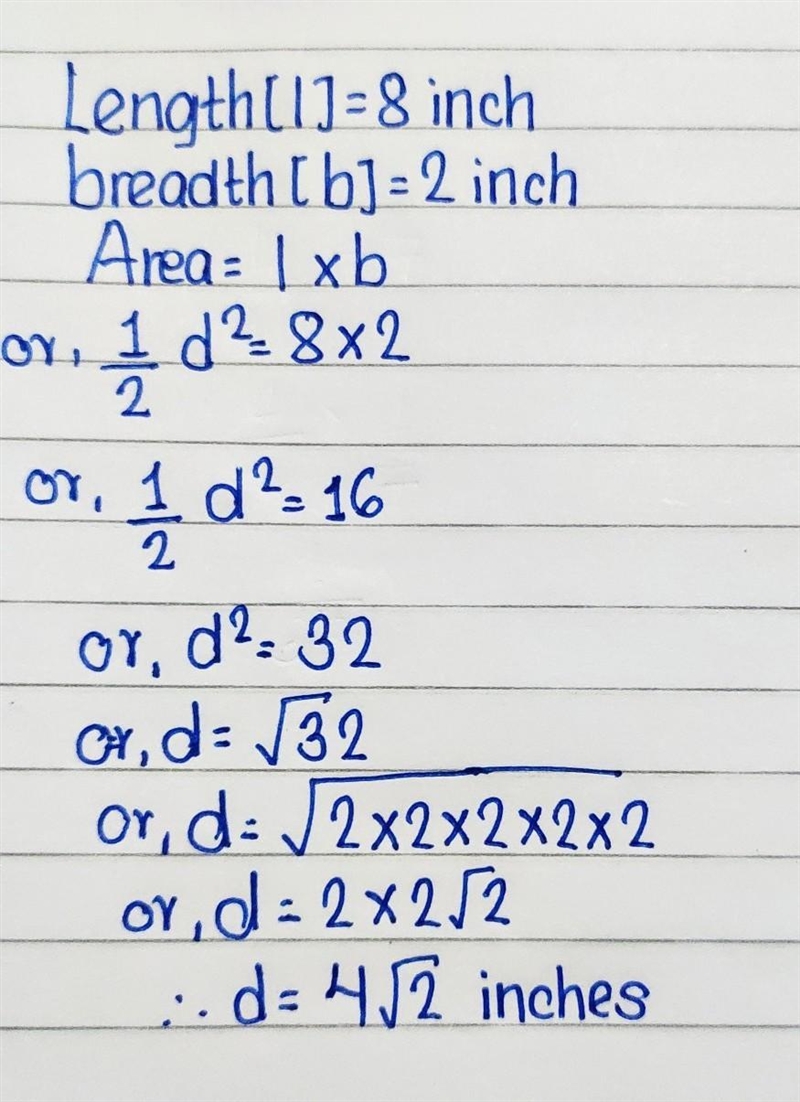 Length[l]=8 inch
breadth[b]=2 inch
Area= l×b
or, 1/2 d²= 8×2
or, 1/2 d²=16
or, d²= 32
or, d= √32
or, d= √2×2×2×2×2
or, d= 2×2√2
∴ d= 4√2 inches